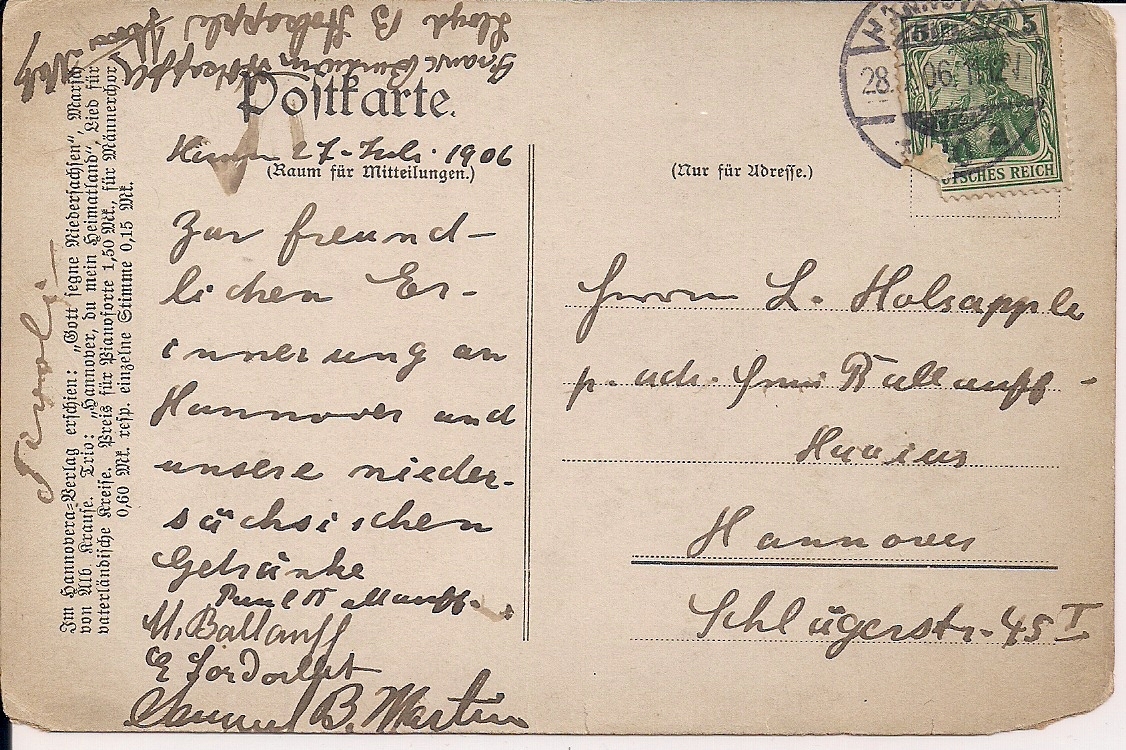 Lloyd B Holsapple
Postkarte.
27. Juli. 1906
(Raum für Mitteilungen.)
Zur freund-
lichen Er-
innerung an
Hannover und
unsere nieder-
sächsischen
Getränke
Paul Ballauff.
M. Ballauff
Samuel B. Martin
Tivoli
Im Hannovera-Verlag erschien: „Gott segne Niedersachsen“, Marsch
von Alb Krause. Trio: „Hannover, du mein Heimatland“, Lied für
vaterländische Kreise. Preis für Pianoforte 1,50 Mk., für Männerchor
0,60 Mk. resp. einzelne Stimme 0,15 Mk.
HANNOVER
28. 7. 06. 11-12 N
5 5
DEUTSCHES REICH
(Nur für Adresse.)
Herrn L. Holsapple
p. adr. Ballauff-
Hannover
Schlägerstr. 45 I